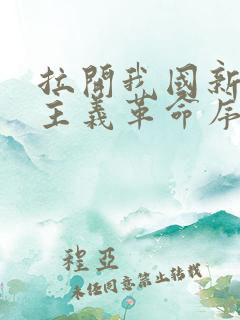 拉開我國新
主義革命序
程亞
未经同意禁止转载